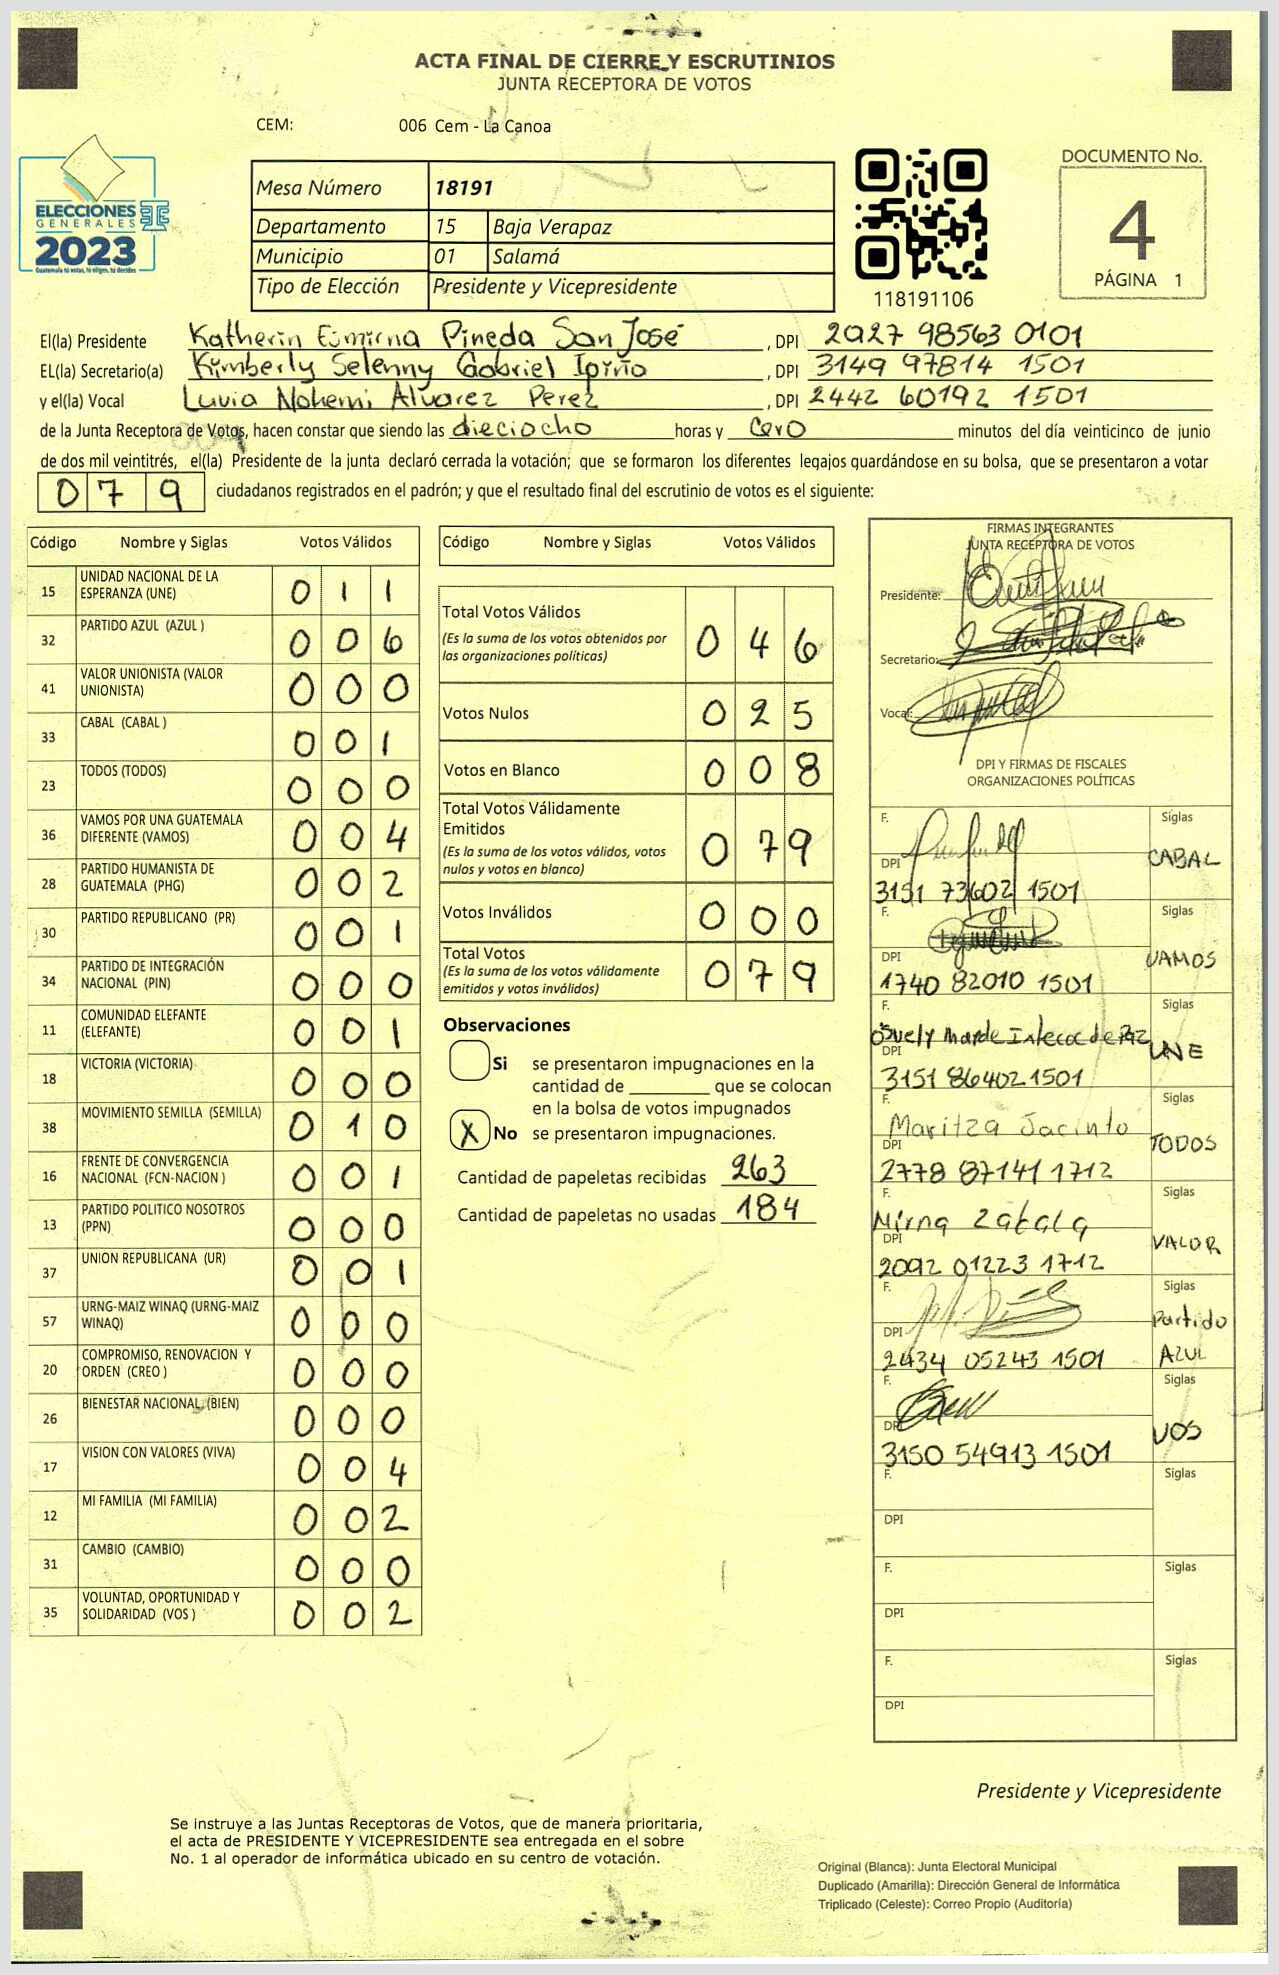 ACTA FINAL DE CIERRE Y ESCRUTINIOS
JUNTA RECEPTORA DE VOTOS
CEM: 006 Cem - La Canoa
ELECCIONES
GENERALES
2023
Guatemala tú votas, tú eliges, tú decides
Mesa Número 18191
Departamento 15 Baja Verapaz
Municipio 01 Salamá
Tipo de Elección Presidente y Vicepresidente
118191106
DOCUMENTO No.
4
PÁGINA 1
El(la) Presidente Katherin Esmirna Pineda San José, DPI 2027 98563 0101
EL(la) Secretario(a) Kimberly Selenny Gabriel Ipiña, DPI 3149 97814 1501
y el(la) Vocal Luvia Nohemi Alvarez Perez, DPI 2442 60192 1501
de la Junta Receptora de Votos, hacen constar que siendo las dieciocho horas y cero minutos del día veinticinco de junio
de dos mil veintitrés, el(la) Presidente de la junta declaró cerrada la votación; que se formaron los diferentes legajos guardándose en su bolsa, que se presentaron a votar
079 ciudadanos registrados en el padrón; y que el resultado final del escrutinio de votos es el siguiente:
Código Nombre y Siglas Votos Válidos
15 UNIDAD NACIONAL DE LA ESPERANZA (UNE) 011
32 PARTIDO AZUL (AZUL ) 006
41 VALOR UNIONISTA (VALOR UNIONISTA) 000
33 CABAL (CABAL ) 001
23 TODOS (TODOS) 000
36 VAMOS POR UNA GUATEMALA DIFERENTE (VAMOS) 004
28 PARTIDO HUMANISTA DE GUATEMALA (PHG) 002
30 PARTIDO REPUBLICANO (PR) 001
34 PARTIDO DE INTEGRACIÓN NACIONAL (PIN) 000
11 COMUNIDAD ELEFANTE (ELEFANTE) 001
18 VICTORIA (VICTORIA) 000
38 MOVIMIENTO SEMILLA (SEMILLA) 010
16 FRENTE DE CONVERGENCIA NACIONAL (FCN-NACION ) 001
13 PARTIDO POLITICO NOSOTROS (PPN) 000
37 UNION REPUBLICANA (UR) 001
57 URNG-MAIZ WINAQ (URNG-MAIZ WINAQ) 000
20 COMPROMISO, RENOVACION Y ORDEN (CREO ) 000
26 BIENESTAR NACIONAL (BIEN) 000
17 VISION CON VALORES (VIVA) 004
12 MI FAMILIA (MI FAMILIA) 002
31 CAMBIO (CAMBIO) 000
35 VOLUNTAD, OPORTUNIDAD Y SOLIDARIDAD (VOS ) 002
Código Nombre y Siglas Votos Válidos
Total Votos Válidos 046
(Es la suma de los votos obtenidos por
las organizaciones políticas)
Votos Nulos 025
Votos en Blanco 008
Total Votos Válidamente
Emitidos 079
(Es la suma de los votos válidos, votos
nulos y votos en blanco)
Votos Inválidos 000
Total Votos 079
(Es la suma de los votos válidamente
emitidos y votos inválidos)
Observaciones
Si se presentaron impugnaciones en la
cantidad de ________ que se colocan
en la bolsa de votos impugnados
X No se presentaron impugnaciones.
Cantidad de papeletas recibidas 263
Cantidad de papeletas no usadas 184
FIRMAS INTEGRANTES
JUNTA RECEPTORA DE VOTOS
Presidente:
Secretario:
Vocal:
DPI Y FIRMAS DE FISCALES
ORGANIZACIONES POLÍTICAS
F. Siglas
DPI CABAL
3151 73602 1501
F. Siglas
DPI VAMOS
1740 82010 1501
F. Siglas
DPI UNE
3151 86402 1501
F. Siglas
Maritza Jacinto
DPI TODOS
2778 87141 1712
F. Siglas
Mirna Zabala
DPI VALOR
2092 01223 1712
F. Siglas
DPI Partido AZUL
2434 05243 1501
F. Siglas
DPI VOS
3150 54913 1501
F. Siglas
DPI
F. Siglas
DPI
F. Siglas
DPI
Presidente y Vicepresidente
Se instruye a las Juntas Receptoras de Votos, que de manera prioritaria,
el acta de PRESIDENTE Y VICEPRESIDENTE sea entregada en el sobre
No. 1 al operador de informática ubicado en su centro de votación.
Original (Blanca): Junta Electoral Municipal
Duplicado (Amarilla): Dirección General de Informática
Triplicado (Celeste): Correo Propio (Auditoría)